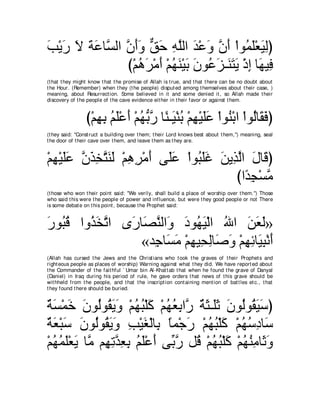 لِيَعْلَمُواْ أَنَّ وَعْدَ اللَّهِ حَقٌّ وَأَنَّ السَّاعَةَ لاَ رَيْبَ
فِيهَا إِذْ يَتَنَـزَعُونَ بَيْنَهُمْ أَمْرَهُمْ)
(that they might know that the promise of Allah is true, and that there can be no doubt about
the Hour. (Remember) when they (the people) disputed among themselves about their case, )
meaning, about Resurrection. Some believed in it and some denied it, so Allah made their
discovery of the people of the cave evidence either in their favor or against them.
(فَقَالُواْ ابْنُواْ عَلَيْهِمْ بُنْيَـنًا رَّبُّهُمْ أَعْلَمُ بِهِمْ)
(they said: "Construct a building over them; their Lord knows best about them,") meaning, seal
the door of their cave over them, and leave them as they are.
(قَالَ الَّذِينَ غَلَبُواْ عَلَى أَمْرِهِمْ لَنَتَّخِذَنَّ عَلَيْهِمْ
مَّسْجِدًا)
(those who won their point said: "We verily, shall build a place of worship over them.") Those
who said this were the people of power and influence, but were they good people or not There
is some debate on this point, because the Prophet said:
«لَعَنَ اللهُ الْيَهُودَ وَالنَّصَارَى اتَّخَذُوا قُبُورَ
أَنْبِيَائِهِمْ وَصَالِحِيهِمْ مَسَاجِد»
(Allah has cursed the Jews and the Christians who took the graves of their Prophets and
righteous people as places of worship) Warning against what they did. We have reported about
the Commander of the faithful `Umar bin Al-Khattab that when he found the grave of Danyal
(Daniel) in Iraq during his period of rule, he gave orders that news of this grave should be
withheld from the people, and that the inscription containing mention of battles etc., that
they found there should be buried.
(سَيَقُولُونَ ثَلَـثَةٌ رَّابِعُهُمْ كَلْبُهُمْ وَيَقُولُونَ خَمْسَةٌ
سَادِسُهُمْ كَلْبُهُمْ رَجْماً بِالْغَيْبِ وَيَقُولُونَ سَبْعَةٌ
وَثَامِنُهُمْ كَلْبُهُمْ قُل رَّبِّى أَعْلَمُ بِعِدَّتِهِم مَّا يَعْلَمُهُمْ